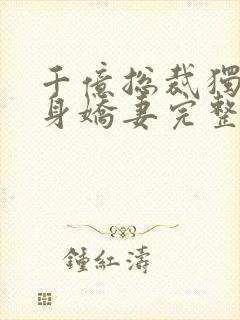 千億总裁獨
身嬌妻完整
鍾紅濤